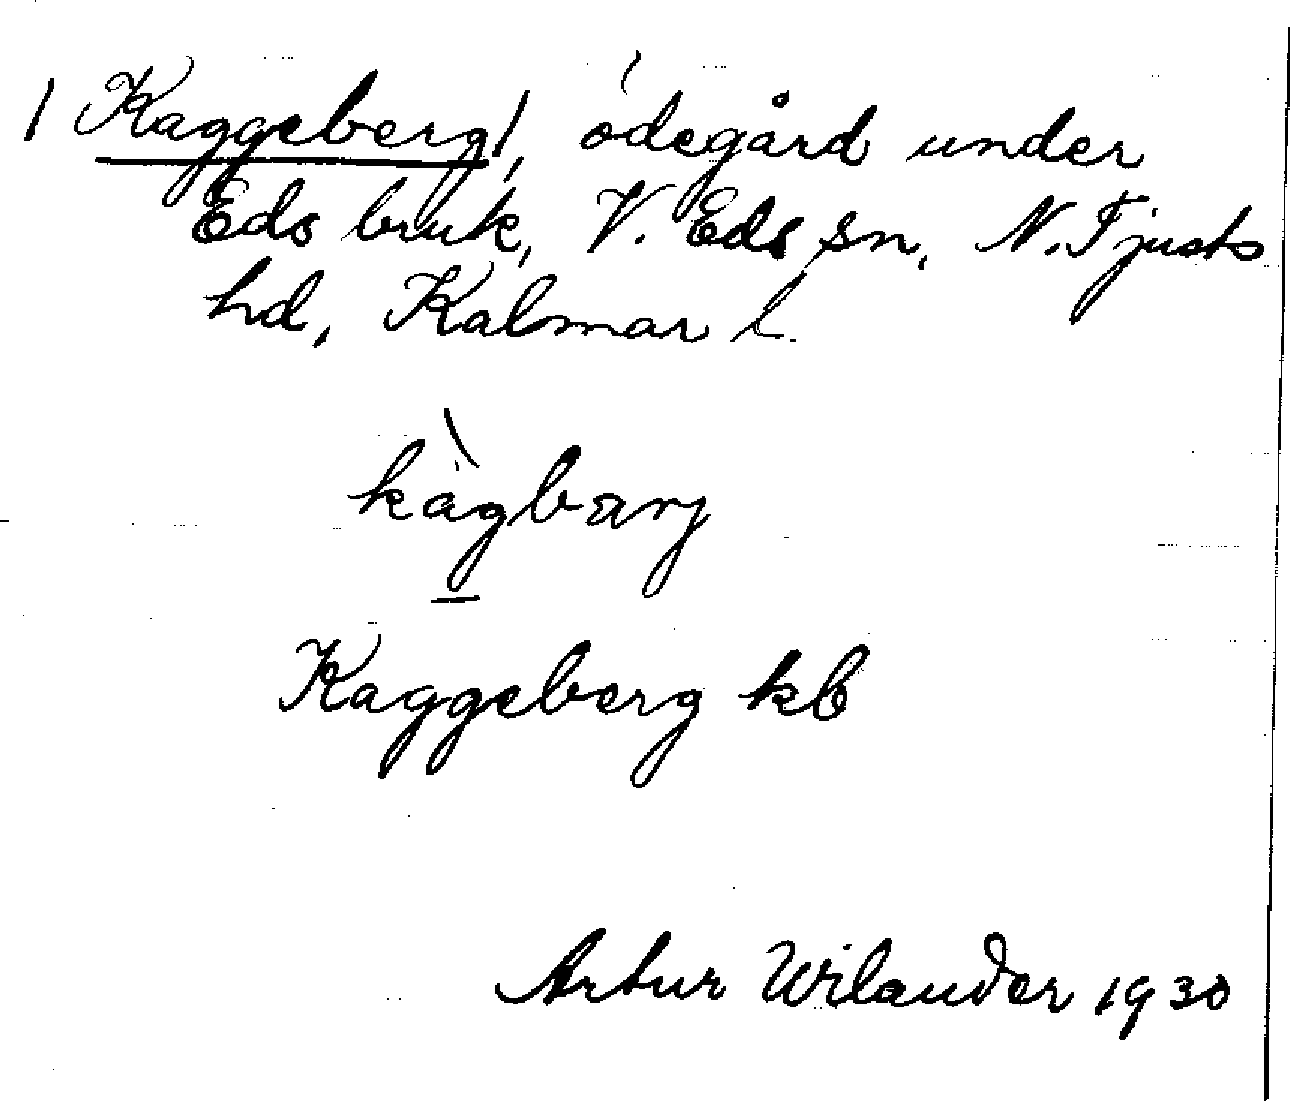 /Kaggeberg/, ödegård under
Eds bruk, V. Eds sn, N. Tjusts
hd, Kalmar l.
kàgbarj
Kaggeberg kb
Artur Wilander 1930